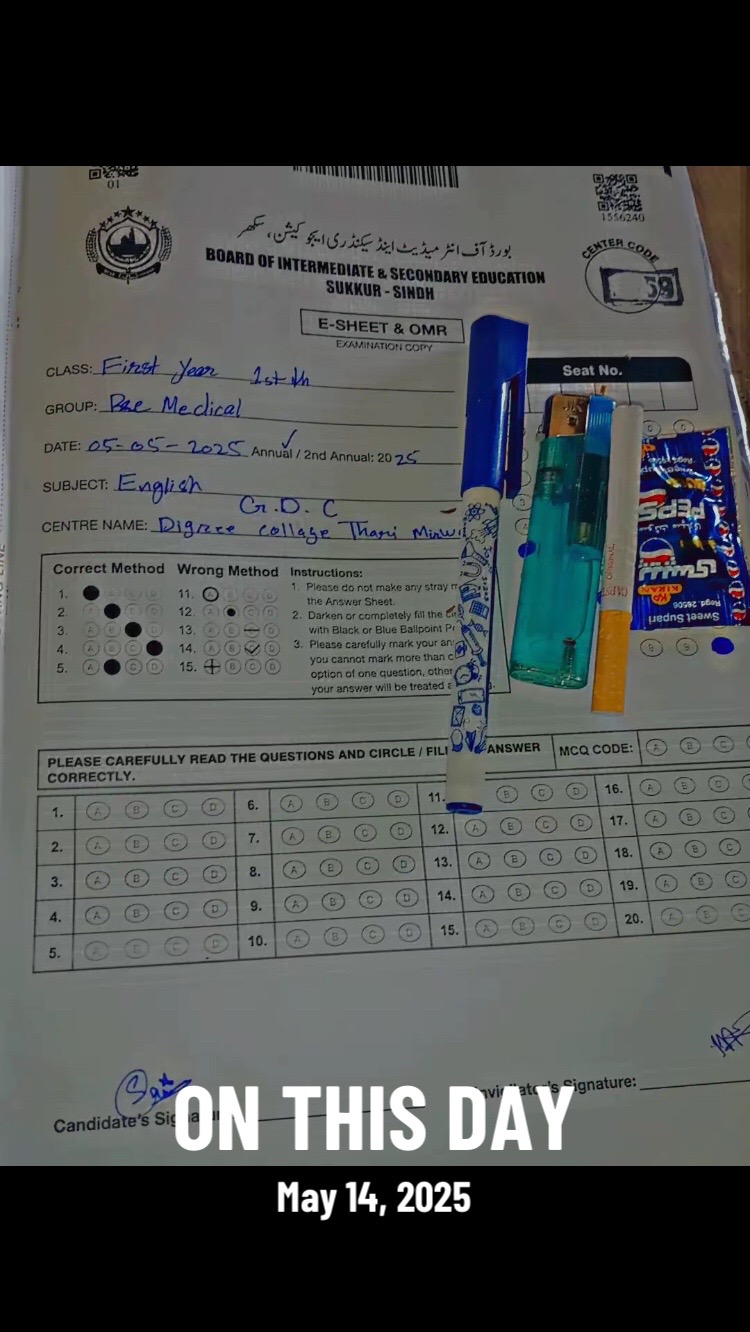 01
1556240
بورڈ آف انٹرمیڈیٹ اینڈ سیکنڈری ایجوکیشن، سکھر
BOARD OF INTERMEDIATE & SECONDARY EDUCATION
SUKKUR - SINDH
CENTER CODE
59
E-SHEET & OMR
EXAMINATION COPY
Seat No.
CLASS: First Year 1st
GROUP: Pre Medical
DATE: 05-05-2025 Annual / 2nd Annual: 2025
SUBJECT: English
G.D.C
CENTRE NAME: Digree collage Thari
Correct Method Wrong Method Instructions:
1. 11. 1. Please do not make any stray
the Answer Sheet.
2. 12. 2. Darken or completely fill the
3. 13. with Black or Blue Ballpoint
4. 14. 3. Please carefully mark your
you cannot mark more than
5. 15. option of one question,
your answer will be treated
PEPSI
KP
KIRAN
Regd. 26506
Sweet Supari
PLEASE CAREFULLY READ THE QUESTIONS AND CIRCLE / ANSWER
CORRECTLY.
MCQ CODE: A B C
1. A B C D 6. A B C D 11. B C D 16. A B C
2. A B C D 7. A B C D 12. A B C D 17. A B C
3. A B C D 8. A B C D 13. A B C D 18. A B C
4. A B C D 9. A B C D 14. A B C D 19. A B C
5. A B C D 10. A B C D 15. A B C D 20. A B C
Candidate's
Signature:
ON THIS DAY
May 14, 2025